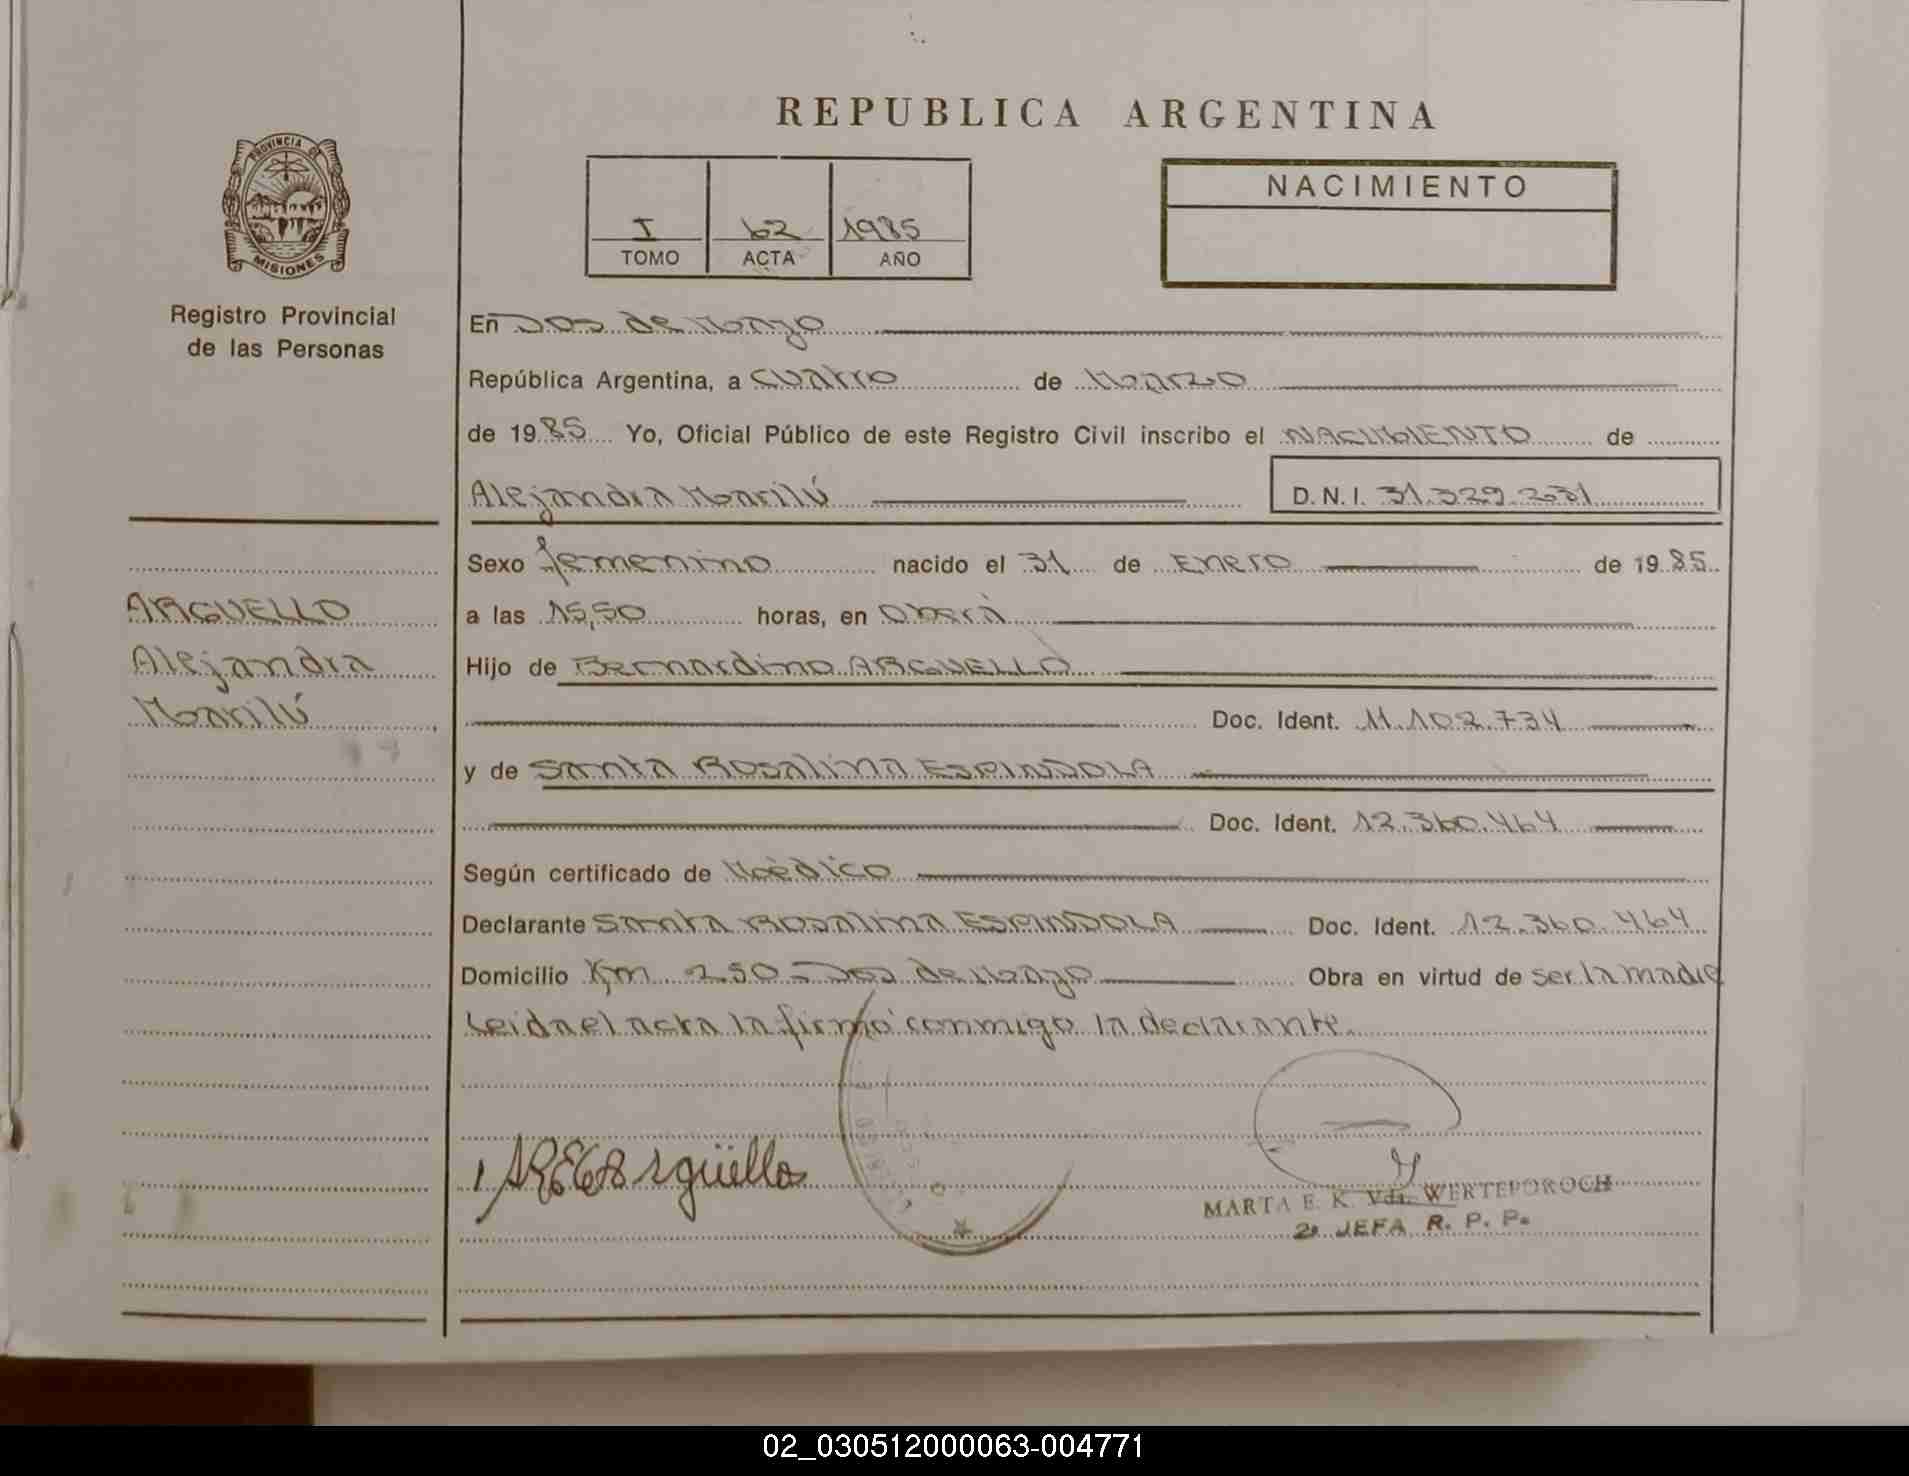 REPUBLICA ARGENTINA
PROVINCIA DE
MISIONES
Registro Provincial
de las Personas
I 62 1985
TOMO ACTA AÑO
NACIMIENTO
En Dos de Mayo
República Argentina, a cuatro de Marzo
de 1985 Yo, Oficial Público de este Registro Civil inscribo el NACIMIENTO de
Alejandra Marilú D. N. I. 31.329.231
Sexo femenino nacido el 31 de Enero de 1985
a las 15,50 horas, en Oberá
Hijo de Bernardino ARGUELLO
Doc. Ident. 11.102.734
y de Santa Rosalina ESPINDOLA
Doc. Ident. 12.360.464
Según certificado de Médico
Declarante Santa Rosalina ESPINDOLA Doc. Ident. 12.360.464
Domicilio Km 250 - Dos de Mayo Obra en virtud de ser la madre
Leida el acta la firmó conmigo la declarante.
ARGUELLO
Alejandra
Marilú
Argüello
MARTA E. K. Vda. WERTEPOROCH
2a JEFA R. P. P.
02_030512000063-004771